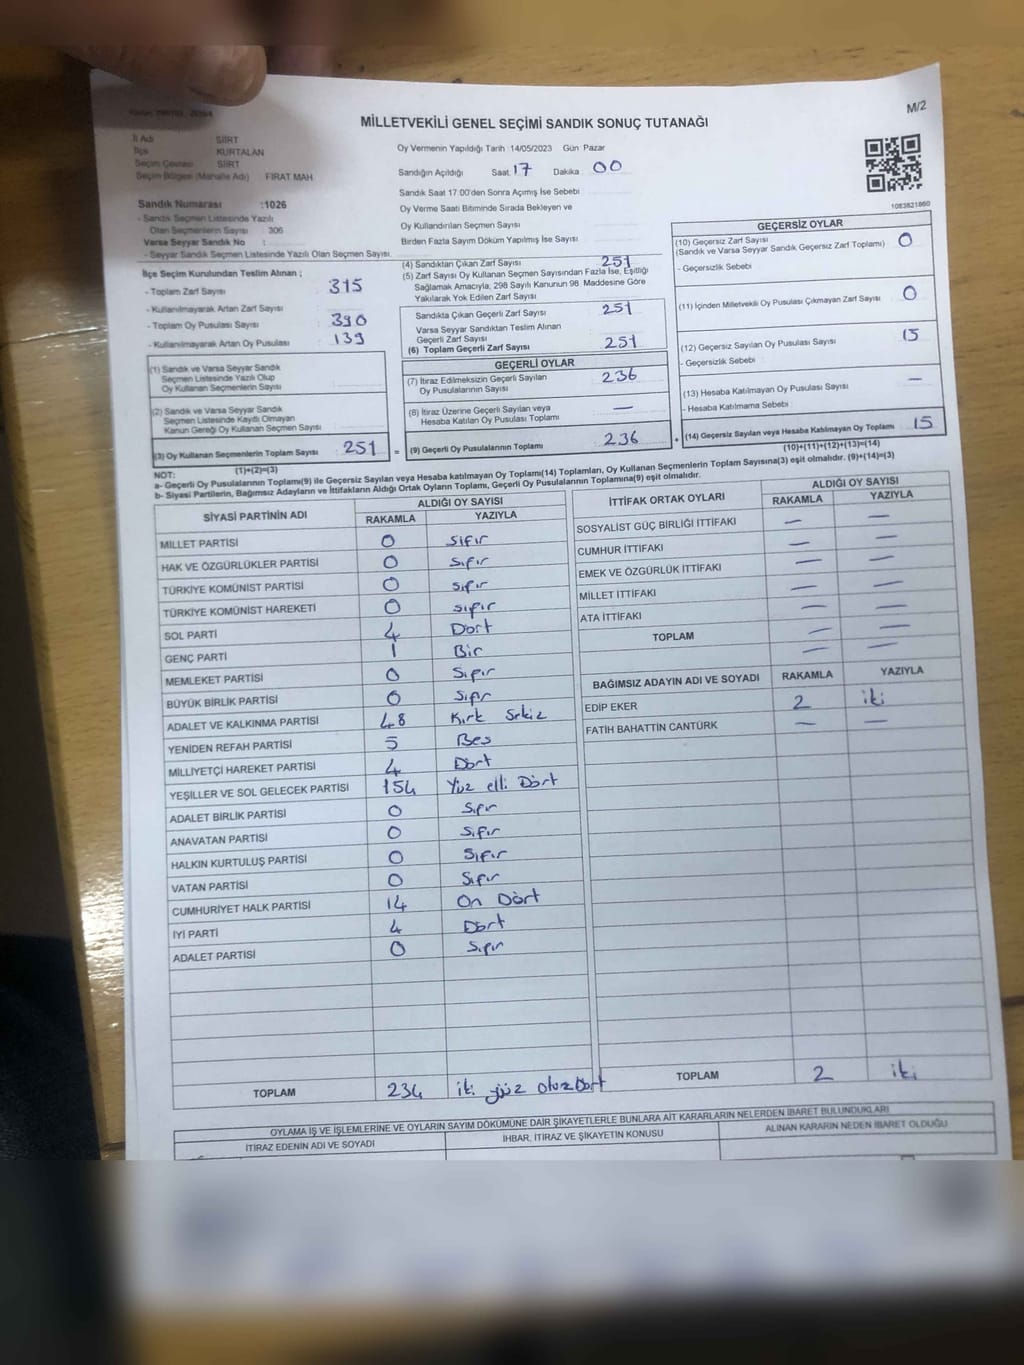 M/2
MİLLETVEKİLİ GENEL SEÇİMİ SANDIK SONUÇ TUTANAĞI
İl Adı SİİRT
İlçe KURTALAN
Seçim Çevresi SİİRT
Seçim Bölgesi (Mahalle Adı) FIRAT MAH
Sandık Numarası :1026
- Sandık Seçmen Listesinde Yazılı
Olan Seçmenlerin Sayısı 306
Varsa Seyyar Sandık No :
- Seyyar Sandık Seçmen Listesinde Yazılı Olan Seçmen Sayısı
Oy Vermenin Yapıldığı Tarih :14/05/2023 Gün Pazar
Sandığın Açıldığı Saat 17 Dakika 00
Sandık Saat 17:00'den Sonra Açımış İse Sebebi
Oy Verme Saati Bitiminde Sırada Bekleyen ve
Oy Kullandırılan Seçmen Sayısı
Birden Fazla Sayım Döküm Yapılmış İse Sayısı
1083821860
İlçe Seçim Kurulundan Teslim Alınan ;
- Toplam Zarf Sayısı : 315
- Kullanılmayarak Artan Zarf Sayısı :
- Toplam Oy Pusulası Sayısı : 390
- Kullanılmayarak Artan Oy Pusulası : 139
(1) Sandık ve Varsa Seyyar Sandık
Seçmen Listesinde Yazılı Olup
Oy Kullanan Seçmenlerin Sayısı
(2) Sandık ve Varsa Seyyar Sandık
Seçmen Listesinde Kayıtlı Olmayan
Kanun Gereği Oy Kullanan Seçmen Sayısı
(3) Oy Kullanan Seçmenlerin Toplam Sayısı : 251 =
(1)+(2)=(3)
(4) Sandıktan Çıkan Zarf Sayısı 251
(5) Zarf Sayısı Oy Kullanan Seçmen Sayısından Fazla İse, Eşitliği
Sağlamak Amacıyla, 298 Sayılı Kanunun 98. Maddesine Göre
Yakılarak Yok Edilen Zarf Sayısı
Sandıkta Çıkan Geçerli Zarf Sayısı 251
Varsa Seyyar Sandıktan Teslim Alınan
Geçerli Zarf Sayısı
(6) Toplam Geçerli Zarf Sayısı 251
GEÇERLİ OYLAR
(7) İtiraz Edilmeksizin Geçerli Sayılan
Oy Pusulalarının Sayısı 236
(8) İtiraz Üzerine Geçerli Sayılan veya
Hesaba Katılan Oy Pusulası Toplamı —
(9) Geçerli Oy Pusulalarının Toplamı : 236 +
GEÇERSİZ OYLAR
(10) Geçersiz Zarf Sayısı 0
(Sandık ve Varsa Seyyar Sandık Geçersiz Zarf Toplamı)
- Geçersizlik Sebebi
(11) İçinden Milletvekili Oy Pusulası Çıkmayan Zarf Sayısı 0
(12) Geçersiz Sayılan Oy Pusulası Sayısı 15
- Geçersizlik Sebebi
(13) Hesaba Katılmayan Oy Pusulası Sayısı —
- Hesaba Katılmama Sebebi
(14) Geçersiz Sayılan veya Hesaba Katılmayan Oy Toplamı 15
(10)+(11)+(12)+(13)=(14)
NOT:
a- Geçerli Oy Pusulalarının Toplamı(9) ile Geçersiz Sayılan veya Hesaba katılmayan Oy Toplamı(14) Toplamları, Oy Kullanan Seçmenlerin Toplam Sayısına(3) eşit olmalıdır. (9)+(14)=(3)
b- Siyasi Partilerin, Bağımsız Adayların ve İttifakların Aldığı Ortak Oyların Toplamı, Geçerli Oy Pusulalarının Toplamına(9) eşit olmalıdır.
SİYASİ PARTİNİN ADI ALDIĞI OY SAYISI
RAKAMLA YAZIYLA
MİLLET PARTİSİ 0 sıfır
HAK VE ÖZGÜRLÜKLER PARTİSİ 0 sıfır
TÜRKİYE KOMÜNİST PARTİSİ 0 sıfır
TÜRKİYE KOMÜNİST HAREKETİ 0 sıfır
SOL PARTİ 4 Dört
GENÇ PARTİ 1 Bir
MEMLEKET PARTİSİ 0 Sıfır
BÜYÜK BİRLİK PARTİSİ 0 Sıfr
ADALET VE KALKINMA PARTİSİ 48 Kırk Sekiz
YENİDEN REFAH PARTİSİ 5 Beş
MİLLİYETÇİ HAREKET PARTİSİ 4 Dört
YEŞİLLER VE SOL GELECEK PARTİSİ 154 Yüz elli Dört
ADALET BİRLİK PARTİSİ 0 Sıfır
ANAVATAN PARTİSİ 0 Sıfır
HALKIN KURTULUŞ PARTİSİ 0 Sıfır
VATAN PARTİSİ 0 Sıfır
CUMHURİYET HALK PARTİSİ 14 On Dört
İYİ PARTİ 4 Dört
ADALET PARTİSİ 0 Sıfır
TOPLAM 234 iki yüz otuzDört
İTTİFAK ORTAK OYLARI ALDIĞI OY SAYISI
RAKAMLA YAZIYLA
SOSYALİST GÜÇ BİRLİĞİ İTTİFAKI — —
CUMHUR İTTİFAKI — —
EMEK VE ÖZGÜRLÜK İTTİFAKI — —
MİLLET İTTİFAKI — —
ATA İTTİFAKI — —
TOPLAM — —
BAĞIMSIZ ADAYIN ADI VE SOYADI RAKAMLA YAZIYLA
EDİP EKER 2 iki
FATİH BAHATTİN CANTÜRK — —
TOPLAM 2 iki
OYLAMA İŞ VE İŞLEMLERİNE VE OYLARIN SAYIM DÖKÜMÜNE DAİR ŞİKAYETLERLE BUNLARA AİT KARARLARIN NELERDEN İBARET BULUNDUKLARI
İTİRAZ EDENİN ADI VE SOYADI İHBAR, İTİRAZ VE ŞİKAYETİN KONUSU ALINAN KARARIN NEDEN İBARET OLDUĞU